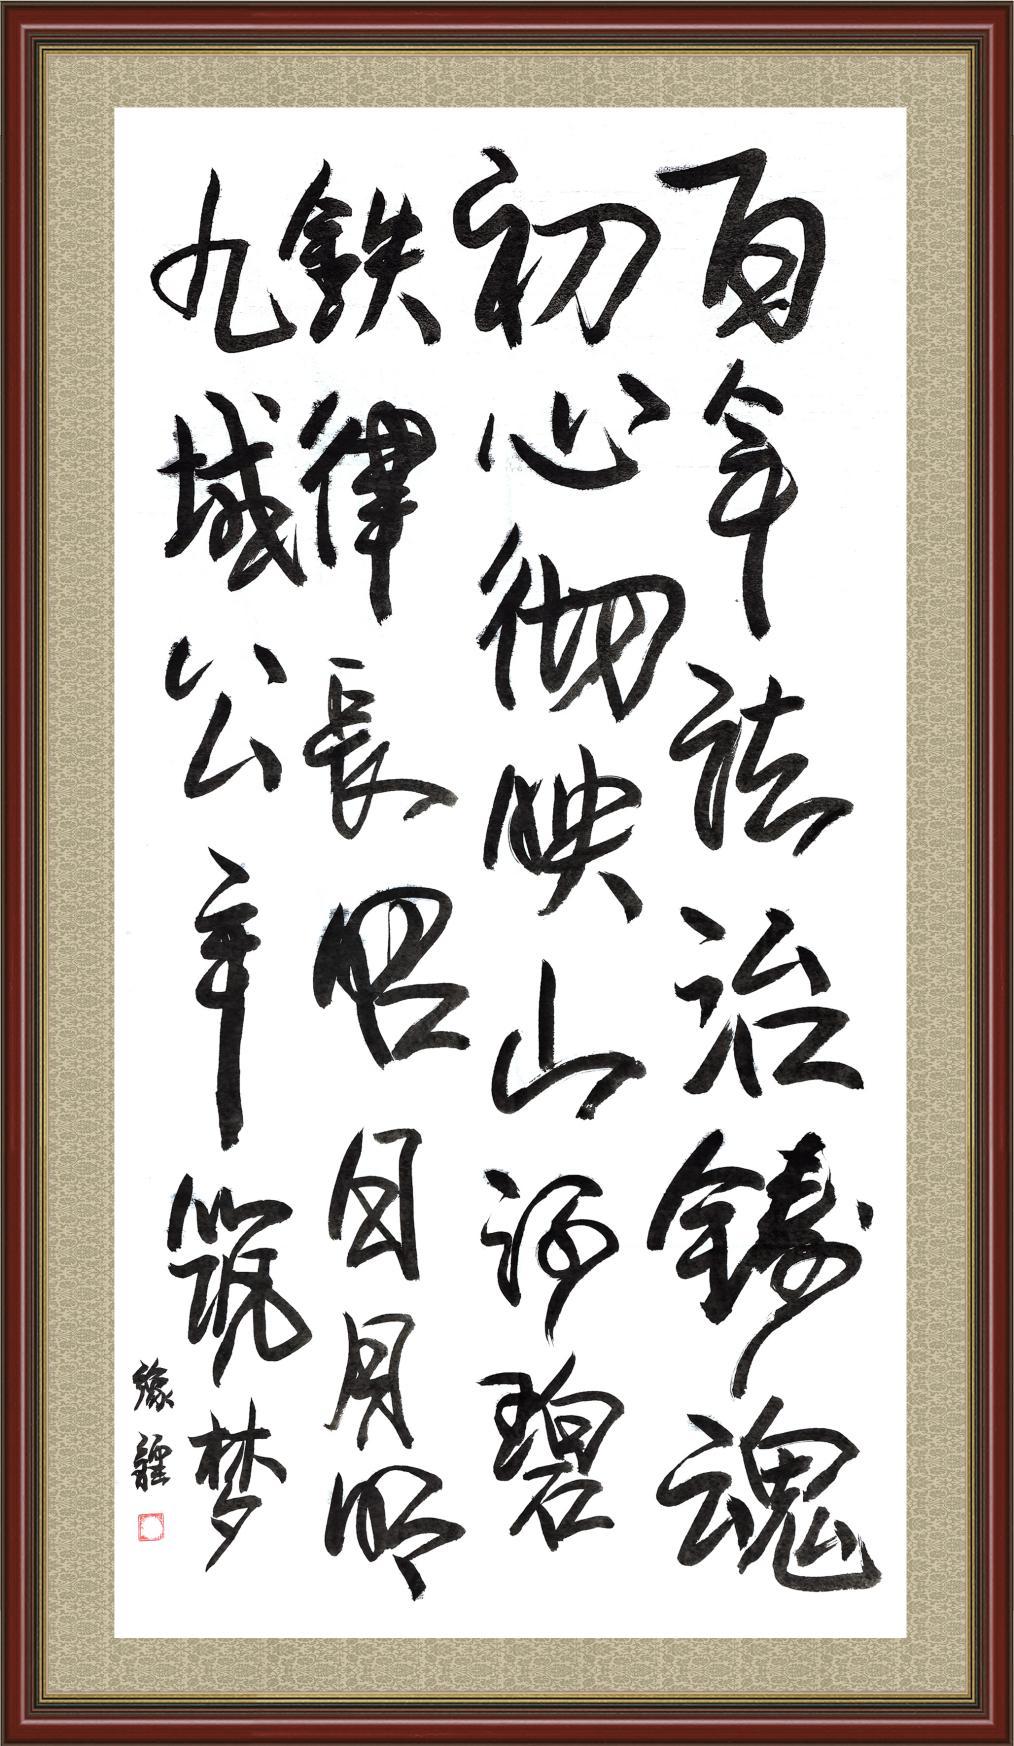 百年法治鑄魂
初心彻映山河碧
鉄律長昭日月明
九域公平筑梦